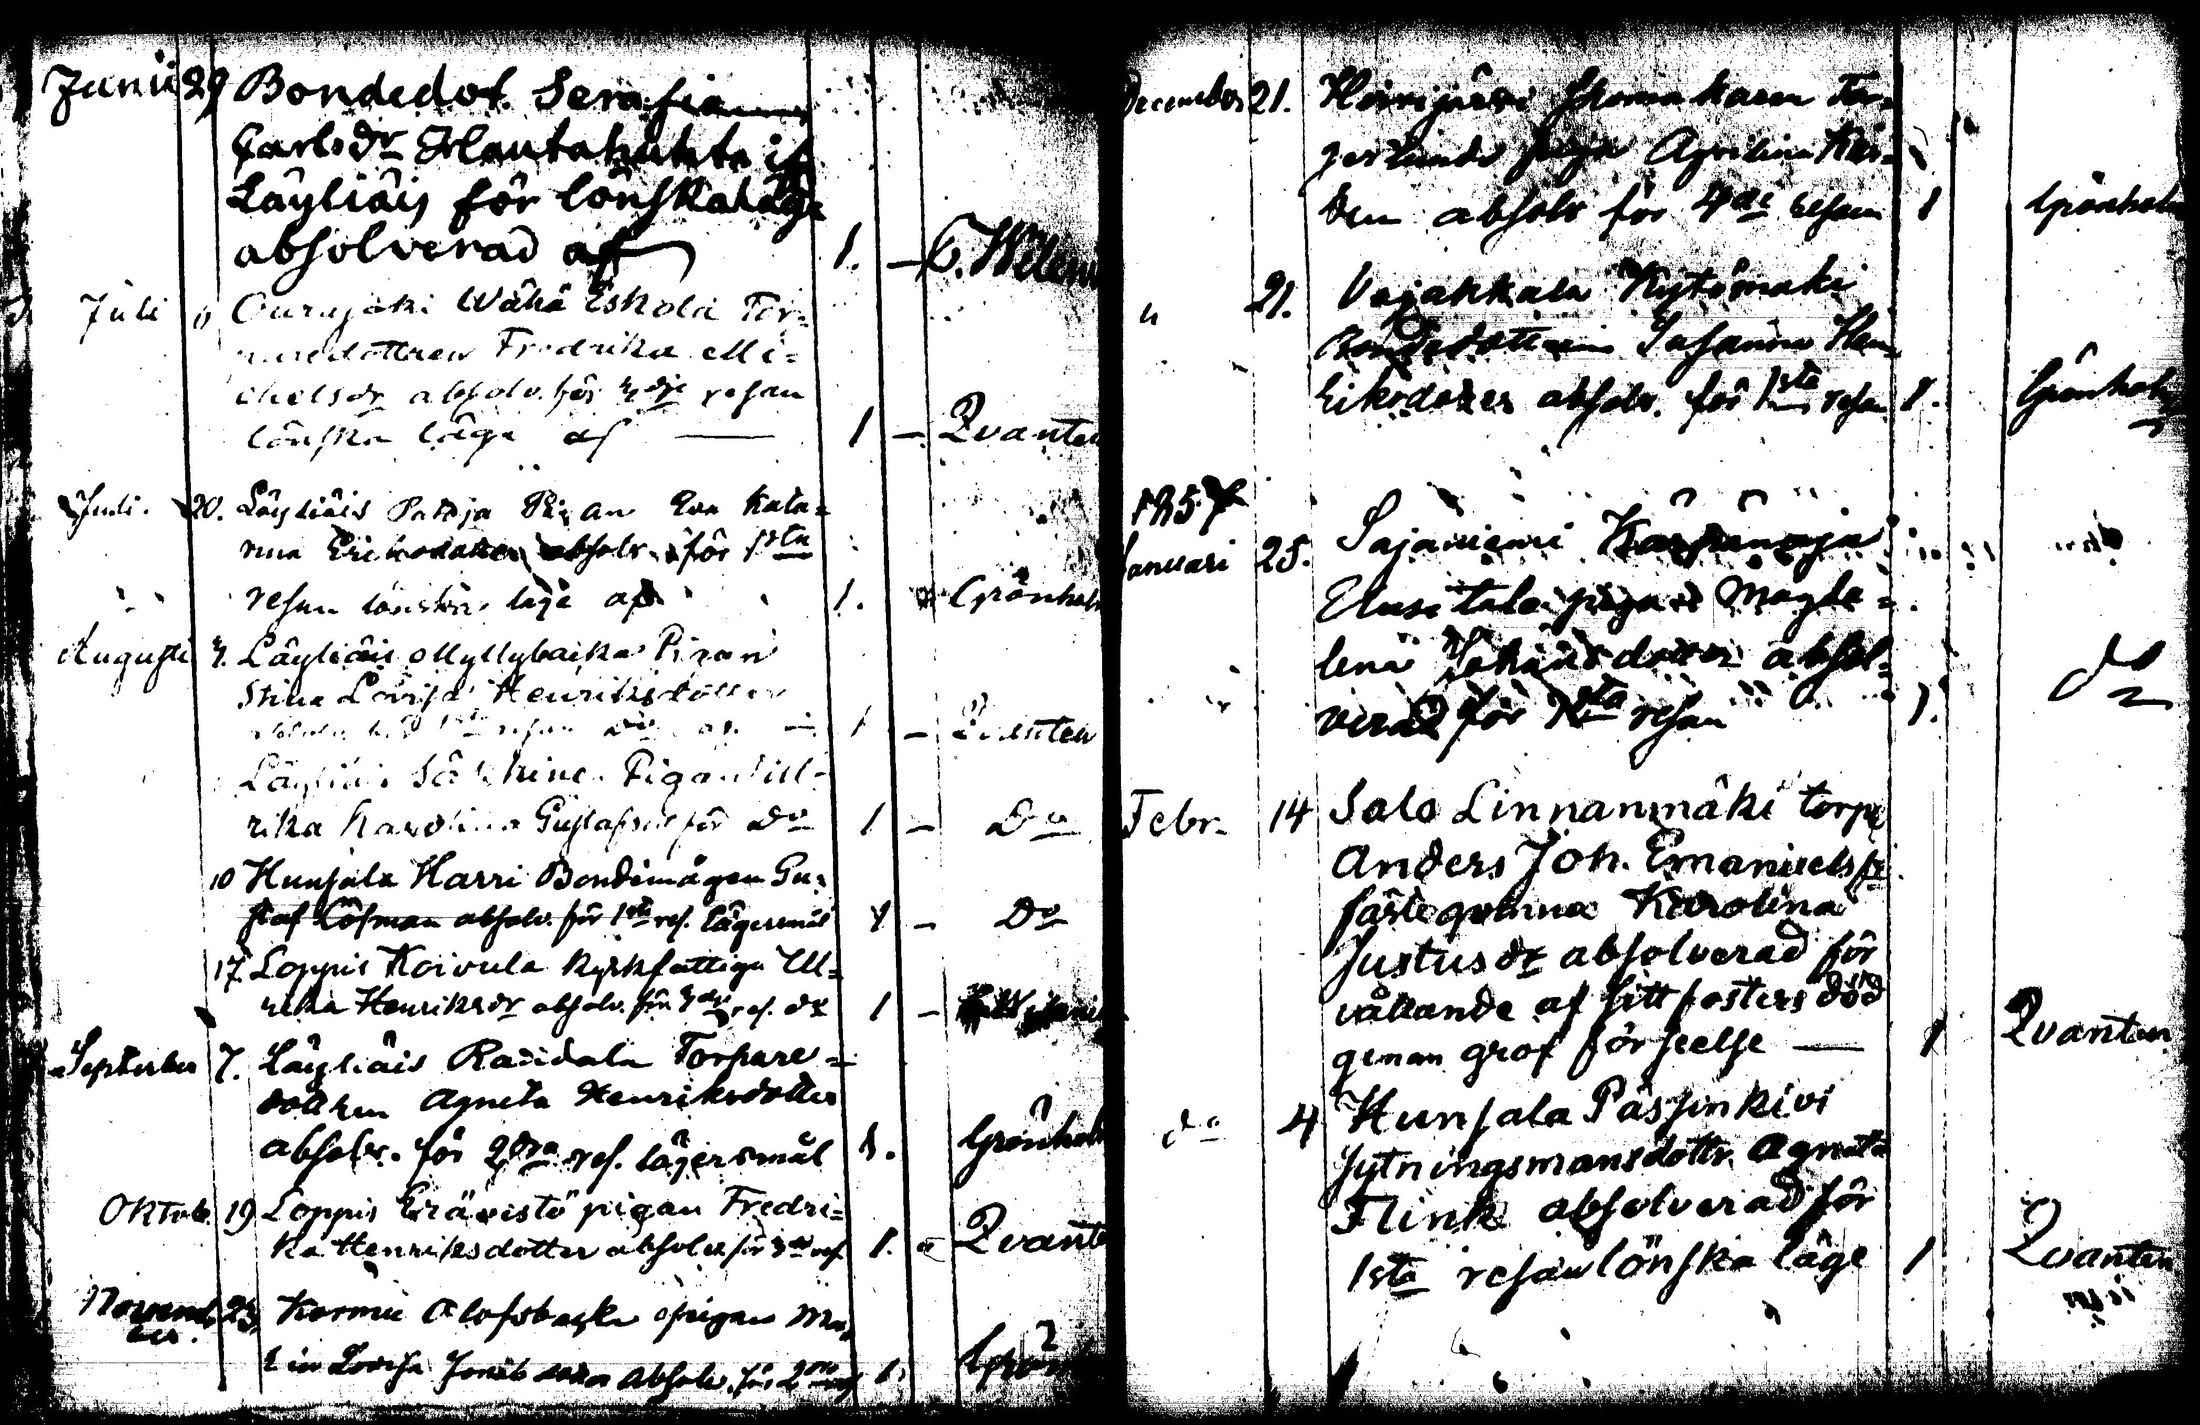 Junii 29 Bondedot. Serafia
Carlsdr Hautahuhta if
Läyliäis för lönskaläge
absolverad af 1. — C. Wileni
Juli Ourajoki Wähä Eskola Tor=
paredottren Fredrika Mi=
chelsdr absolv. för 3dje resan
lönska läge af — 1 — Qvanten
Juli. 20. Läyliäis Patoja Pigan Eva Kata=
rina Ericsdotter absolv. för 1sta
resan lönska läge af 1. Grönholm
Augusti 3. Läyliäis Myllybacka Pigan
Stina Lovisa Henriksdotter
1sta resan do af 1 — Qvanten
Läyliäis Pigan Ull=
rika Karolina Gustafsdr för Do 1 — Do
10 Hunsala Harri Bondemågen Gu=
staf Löfman absolv. för 1sta res. lägersmål 1 — Do
17. Loppis Koivula Kyrkfattiga Ull=
rika Henriksdr absolv. för res. do 1 —
September 7. Läyliäis Raudala Torpare=
dottren Agneta Henriksdotter
absolv. för 2dra res. lägersmål 1. Grönholm
Oktob. 19 Loppis Eräwistö pigan Fredri=
ka Henriksdotter absolv. för 3de res. 1. Qvanten
Novem=
ber. 23. Kormu Olofsbacka pigan
Lovisa absolv. för 2dra res. 1. Grönholm
December 21. Hirvijärvi Skomakaren
piga
den absolv för 4de resan 1 Grönholm
" 21. Vojakkala Kytömäki
Bondedottren Susanna Hen=
riksdotter absolv. för 1sta resan 1. Grönholm
1857
Januari 25. Sajaniemi
Uusitalo pigan Magda=
lena Johansdotter absol=
verad för 1sta resan 1. do
Febr. 14 Salo Linnanmäki torp.
Anders Joh. Emanuelss.
fästeqvinna Karolina
Justusdr absolverad för
vållande af sitt fosters död
genom grof förseelse — 1 Qvanten
do 4 Hunsala Pässinkivi
sytningsmansdottr. Agneta
Flink absolverad för
1sta resan lönska läge 1 Qvanten